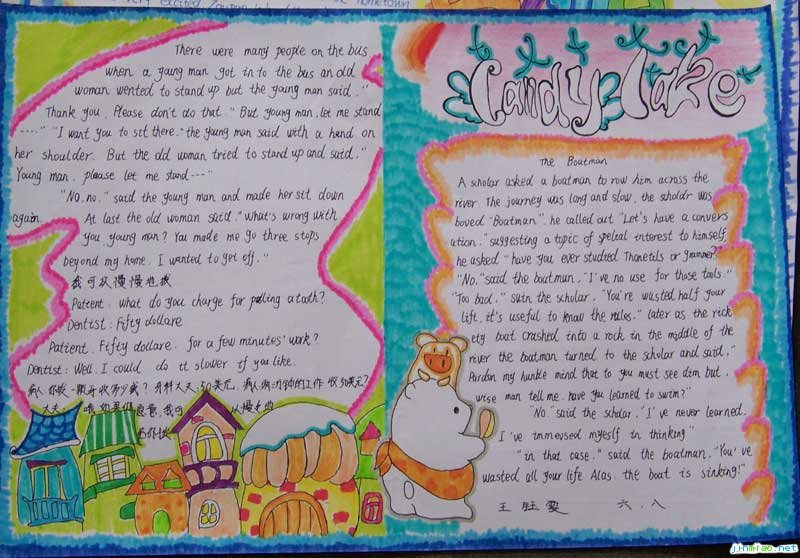 There were many people on the bus
when a young man got in to the bus an old
woman wented to stand up but the young man said."
Thank you. Please don't do that." But young man. let me stand
----" "I want you to sit there." the young man said with a hand on
her shoulder. But the old woman tried to stand up and said,"
Young man. please let me stand---"
"No, no." said the young man and made her sit down
again. At last the old woman said. "What's wrong with
you young man? You made me go three stops
beyond my home. I wanted to get off."
我可以慢慢地拔
Patient: what do you charge for pulling a tooth?
Dentist: Fifty dollare
Patient: Fifty dollare. for a few minutes' work?
Dentist: Well. I could do it slower if you like.
病人:你拔一颗牙收多少钱? 牙科大夫:50美元. 病人:两三分钟的工作收50美元?
大夫: 我可 慢
Candy lake
The Boatman
A scholar asked a boatman to row him across the
river. The journey was long and slow. the scholar was
boved "Boatman". he called out "Let's have a convers
ation." suggesting a topic of speltal interest to himself.
he asked "have you ever studied Thonetils or grammer?"
"No." said the boatman, "I've no use for those tools."
"Too bad." swin the scholar. "You're wasted half your
lift. it's useful to know the rules." later as the rick
ety boat crashed into a rock in the middle of the
river the boatman turned to the scholar and said,"
Pardon my humble mind that to you must see dim but,
wise man tell me. have you learned to swim?"
"No." said the scholar, "I've never learned.
I've immevsed myself in thinking"
"in that case." said the boatman. "You've
wasted all your life Alas. the boat is sinking!"
王 雯 六.八
jinmiao.net